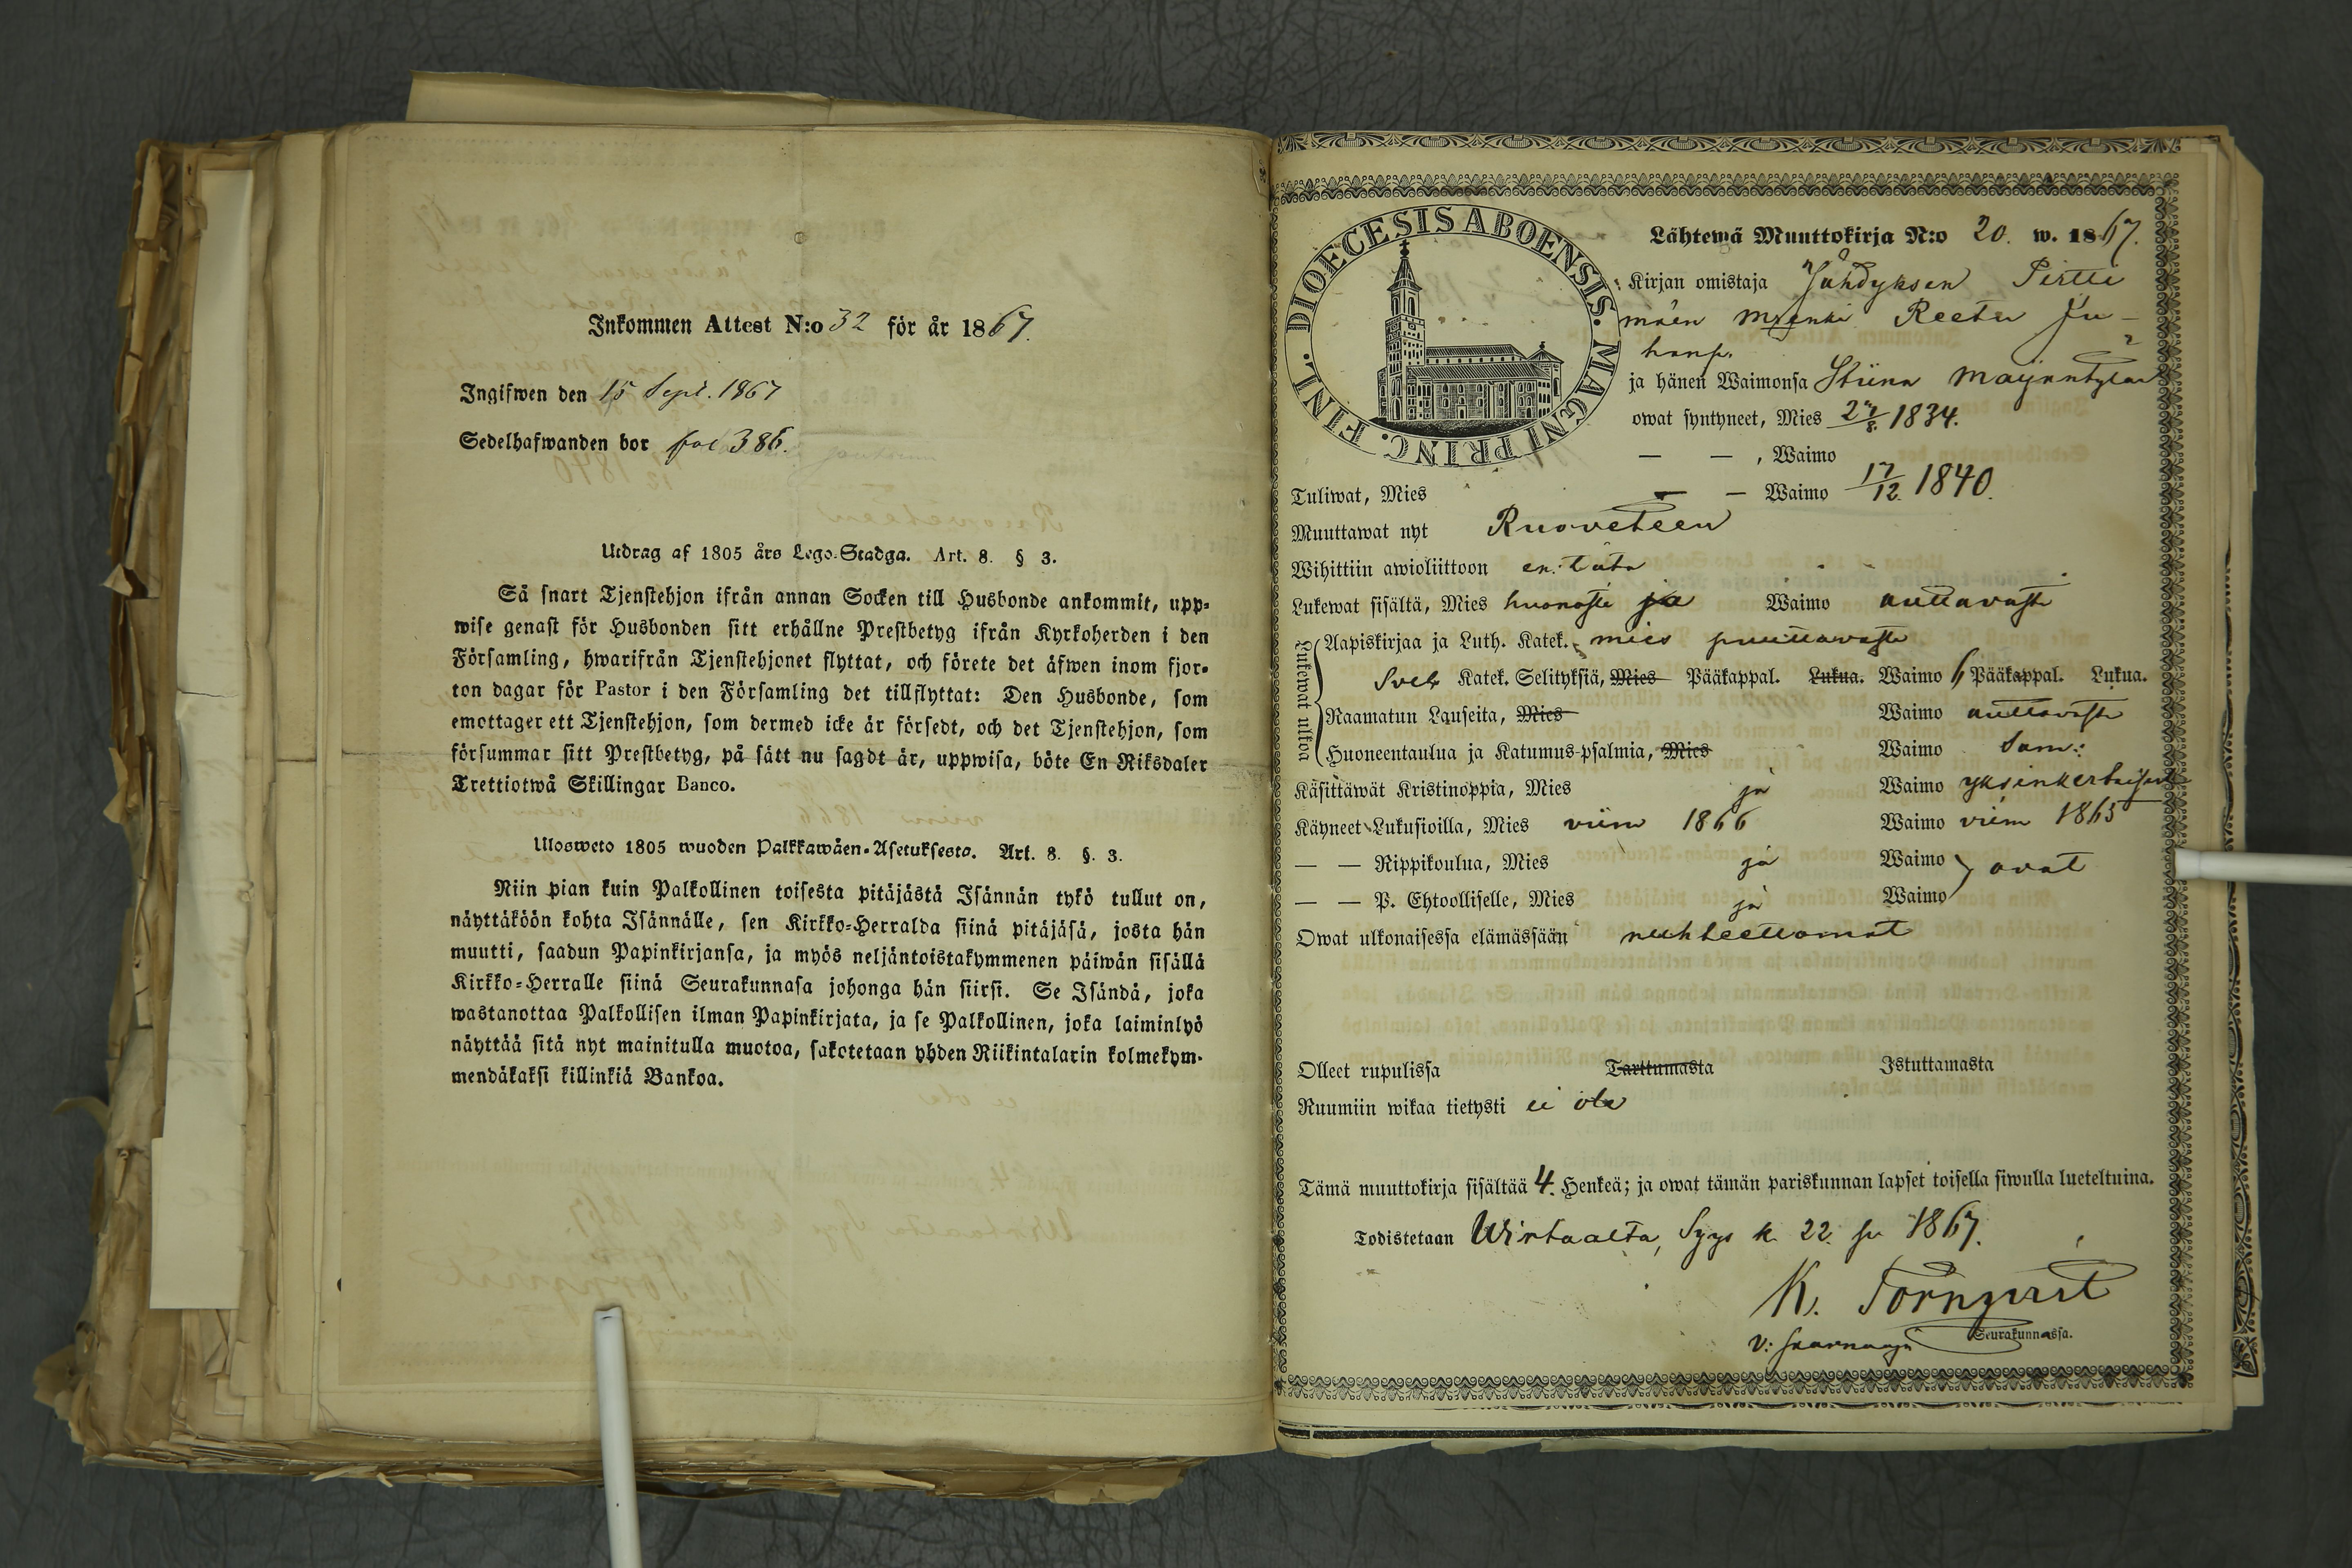 Inkommen Attest N:o 32 för år 1867.
Ingifwen den 15 Sept. 1867
Sedelhafwanden bor fol 386.
Utdrag af 1805 års Lego-Stadga. Art. 8. § 3.
Så snart Tjenstehjon ifrån annan Socken till Husbonde ankommit, upp-
wise genast för Husbonden sitt erhållne Prestbetyg ifrån Kyrkoherden i den
Församling, hwarifrån Tjenstehjonet flyttat, och förete det äfwen inom fjor-
ton dagar för Pastor i den Församling det tillflyttat: Den Husbonde, som
emottager ett Tjenstehjon, som dermed icke är försedt, och det Tjenstehjon, som
försummar sitt Prestbetyg, på sätt nu sagdt är, uppwisa, böte En Riksdaler
Trettiotwå Skillingar Banco.
Ulosweto 1805 wuoden Palkkawäen-Asetuksesta. Art. 8. §. 3.
Niin pian kuin Palkollinen toisesta pitäjästä Isännän tykö tullut on,
näyttäköön kohta Isännälle, sen Kirkko-Herralda siinä pitäjäsä, josta hän
muutti, saadun Papinkirjansa, ja myös neljäntoistakymmenen päiwän sisällä
Kirkko-Herralle siinä Seurakunnasa johonga hän siirsi. Se Isändä, joka
wastanottaa Palkollisen ilman Papinkirjata, ja se Palkollinen, joka laiminlyö
näyttää sitä nyt mainitulla muotoa, sakotetaan yhden Riikintalarin kolmekym-
mendäkaksi killinkiä Bankoa.
DIOECESIS ABOENSIS. MAGNI PRINC. FINL.
Lähtewä Muuttokirja N:o 20. w. 1867.
Kirjan omistaja Jähdyksen Pirtti
mäen Reeta Ju-
hanp.
ja hänen Waimonsa Stiina
owat syntyneet, Mies 2 1834.
— — , Waimo
Tuliwat, Mies — — Waimo 17/12. 1840.
Muuttawat nyt Ruoveteen
Wihittiin awioliittoon en: tätä
Lukewat sisältä, Mies huonosti ja Waimo auttavasti
Lukewat ulkoa
Aapiskirjaa ja Luth. Katek. mies puuttuvasti
Sveb Katek. Selityksiä, Mies Pääkappal. Lukua. Waimo 6 Pääkappal. Lukua.
Raamatun Lauseita, Mies Waimo auttavasti
Huoneentaulua ja Katumus-psalmia, Mies Waimo Sam:
Käsittäwät Kristinoppia, Mies ja Waimo yksinkertaisesti
Käyneet Lukusioilla, Mies viim 1866 Waimo viim 1865
— — Rippikoulua, Mies ja Waimo ovat
— — P. Ehtoolliselle, Mies ja Waimo
Owat ulkonaisessa elämässään nuhteettomat
Olleet rupulissa Tarttumasta Istuttamasta
Ruumiin wikaa tietysti ei ole
Tämä muuttokirja sisältää 4. Henkeä; ja owat tämän pariskunnan lapset toisella siwulla lueteltuina.
Todistetaan Wirtaalta, Syys k. 22. p. 1867.
K. Tornqvist
v: saarnaaja Seurakunnassa.